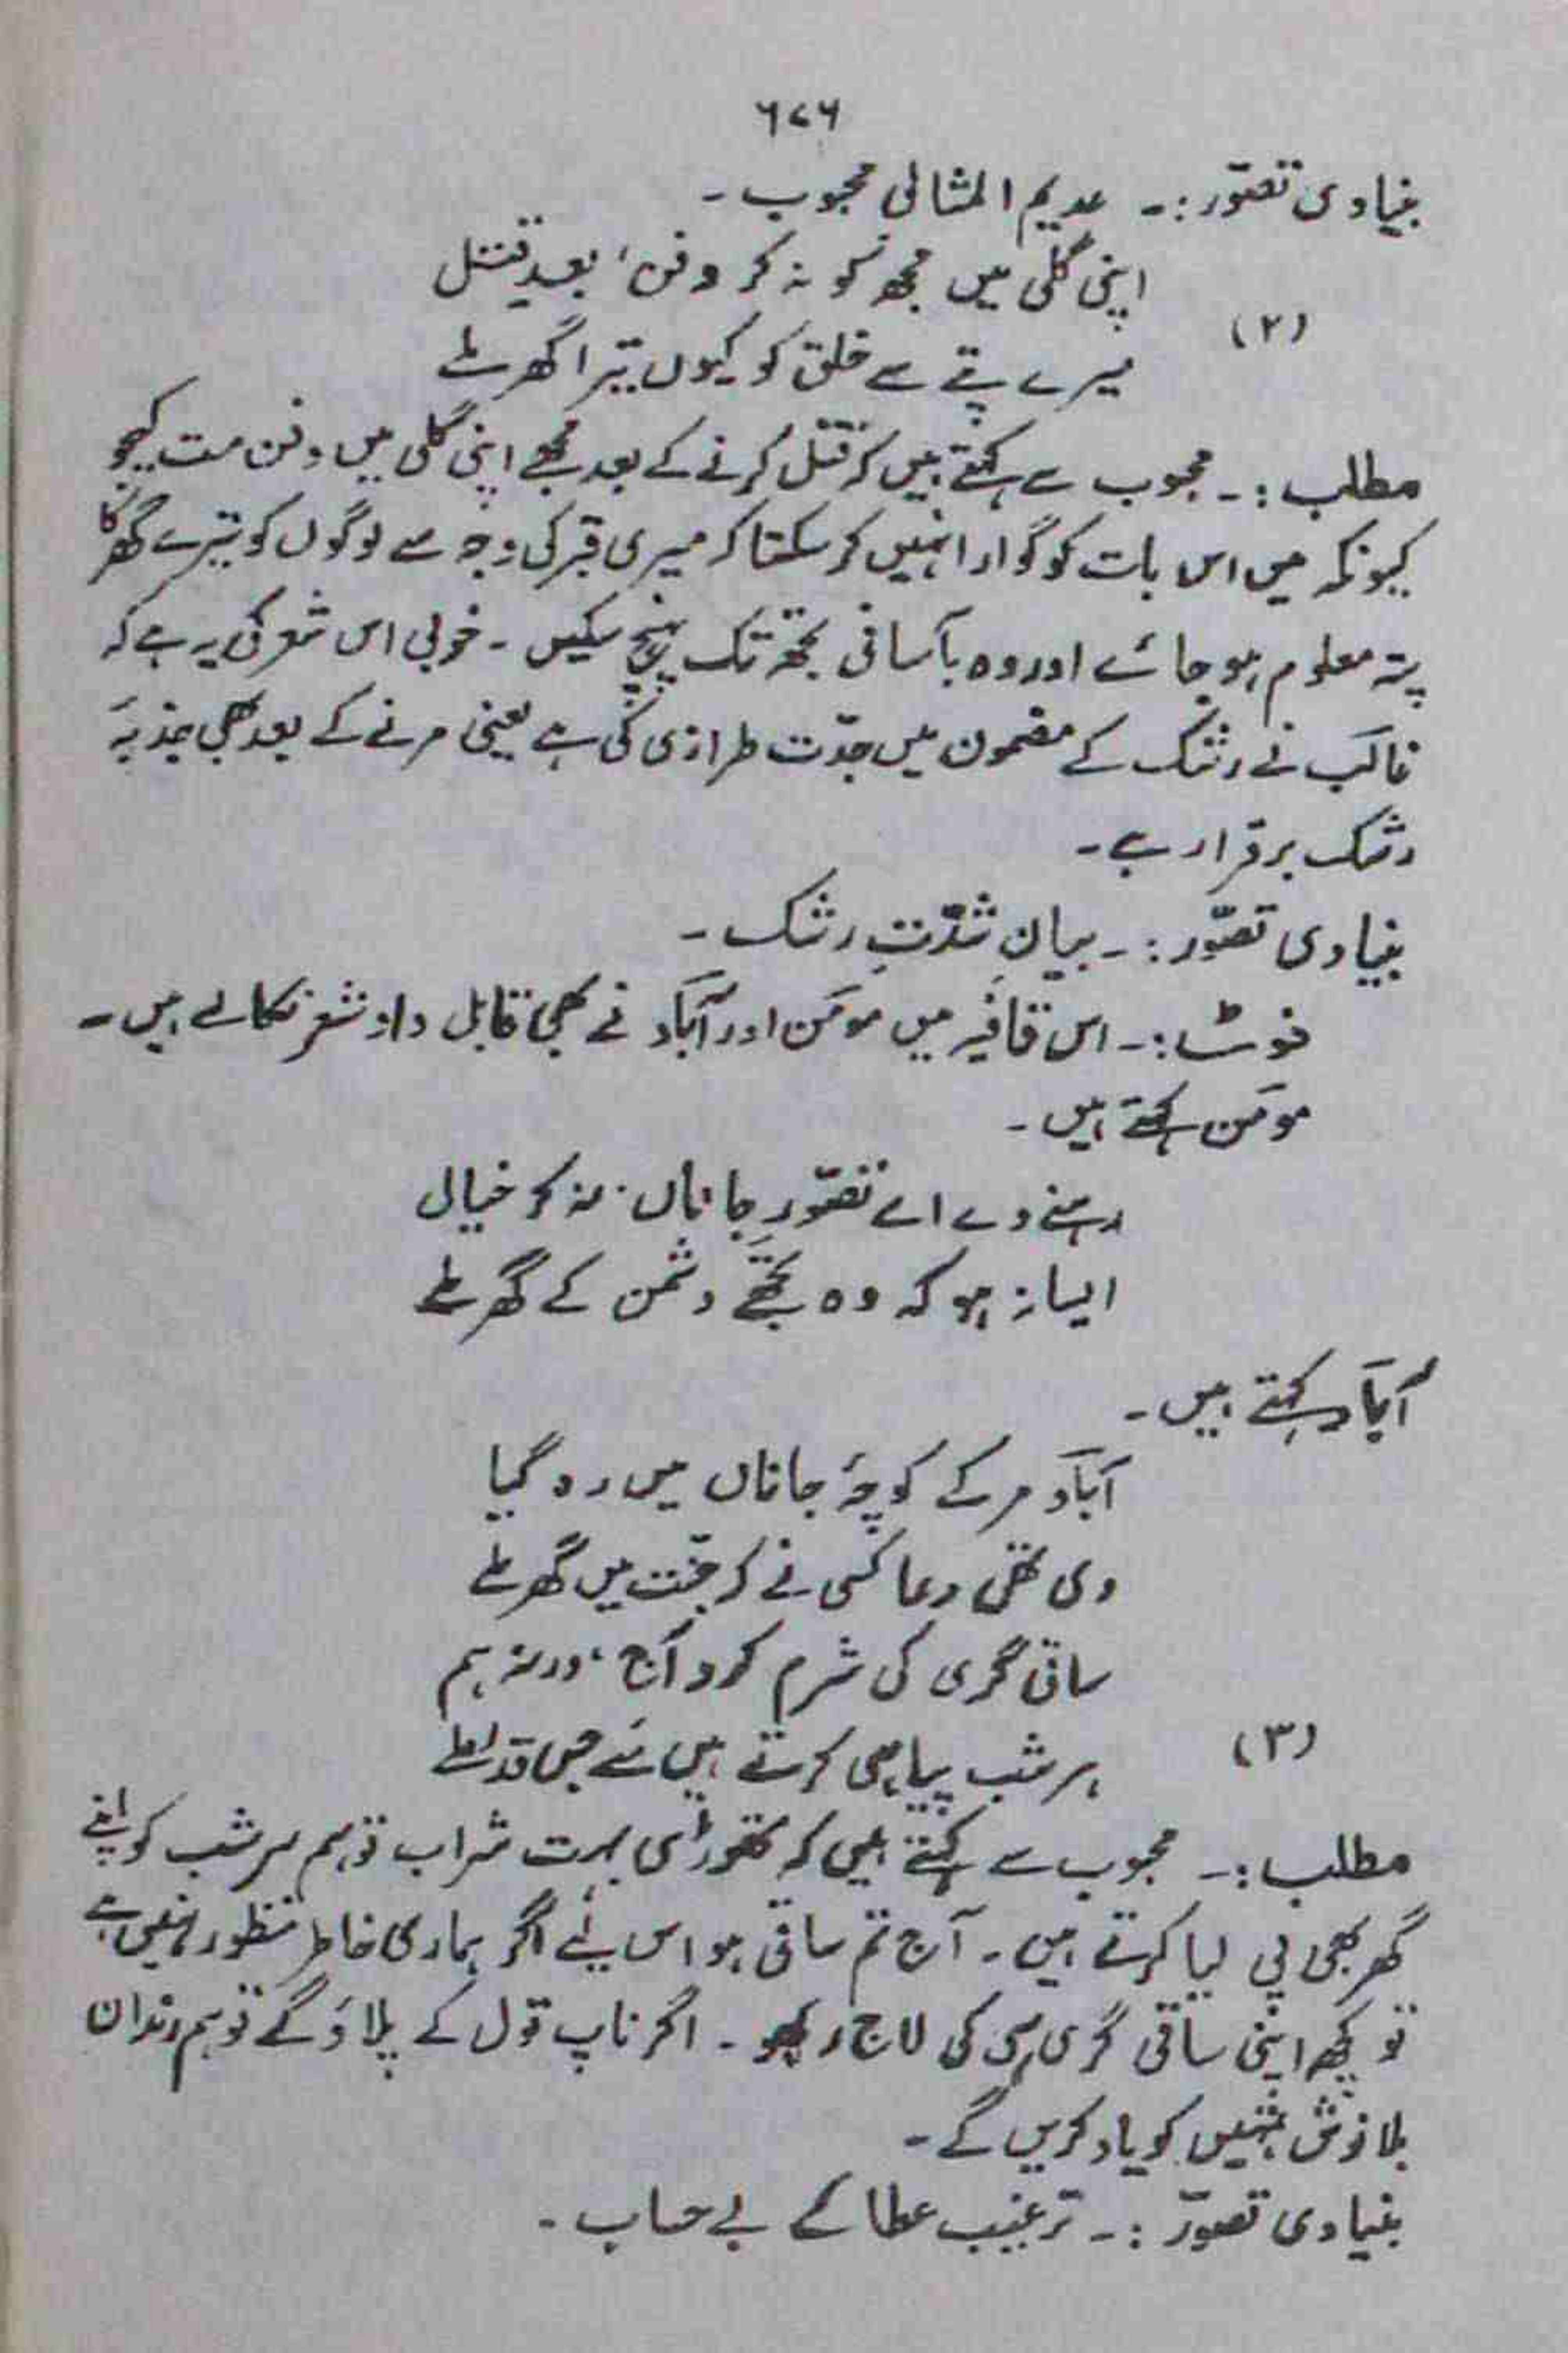 ۶۷۶
بنیادی تصوّر :۔ عدیم المثالی محبوب ۔
اپنی گلی میں مجھ کو نہ کر دفن، بعدِ قتل
(۲)
میرے پتے سے خلق کو کیوں تیرا گھر ملے
مطلب :۔ محبوب سے کہتے ہیں کہ قتل کرنے کے بعد مجھے اپنی گلی میں دفن مت کیجو
کیونکہ میں اس بات کو گوارا نہیں کر سکتا کہ میری قبر کی وجہ سے لوگوں کو تیرے گھر کا
پتہ معلوم ہو جائے اور وہ بآسانی تجھ تک پہنچ سکیں ۔ خوبی اس شعر کی یہ ہے کہ
غالبؔ نے رشک کے مضمون میں جدّت طرازی کی ہے یعنی مرنے کے بعد بھی جذبۂ
رشک برقرار ہے ۔
بنیادی تصوّر :۔ بیانِ شدّتِ رشک ۔
نوٹ :۔ اس قافیہ میں مومنؔ اور آبادؔ نے بھی قابل داد شعر نکالے ہیں ۔
مومنؔ کہتے ہیں ۔
رہنے دے اے تصوّرِ جاناں نہ کر خیال
ایسا نہ ہو کہ وہ تجھے دشمن کے گھر ملے
آبادؔ کہتے ہیں ۔
آبادؔ مر کے کوچۂ جاناں میں رہ گیا
دی تھی دعا کسی نے کہ جنّت میں گھر ملے
ساقی گری کی شرم کرو آج، ورنہ ہم
(۳)
ہر شب پیا ہی کرتے ہیں مے جس قدر ملے
مطلب :۔ محبوب سے کہتے ہیں کہ تھوڑی بہت شراب تو ہم ہر شب کو اپنے
گھر بھی پی لیا کرتے ہیں ۔ آج تم ساقی ہو اس لئے اگر ہماری خاطر منظور نہیں ہے
تو کچھ اپنی ساقی گری ہی کی لاج رکھو ۔ اگر ناپ تول کے پلاؤ گے تو ہم رندان
بلا نوش تمہیں کو یاد کریں گے ۔
بنیادی تصوّر :۔ ترغیب عطائے بے حساب ۔